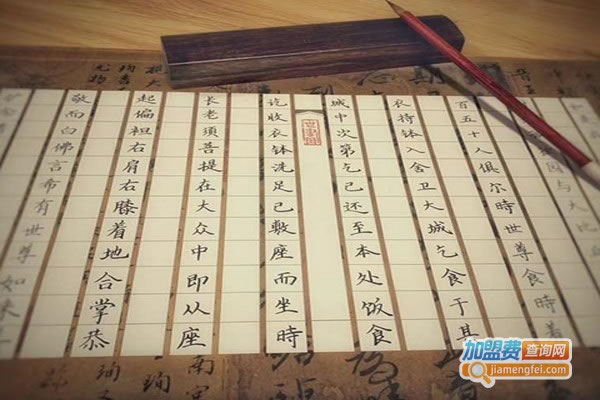 园与大比丘
百五十人俱尔時世尊食時着
衣持钵入舍卫大城乞食于其
城中次第乞已还至本处饭食
讫收衣钵洗足已敷座而坐時
长老须菩提在大众中即从座
起偏袒右肩右膝着地合掌恭
敬而白佛言希有世尊如来
加盟费查询网
jiamengfei.com